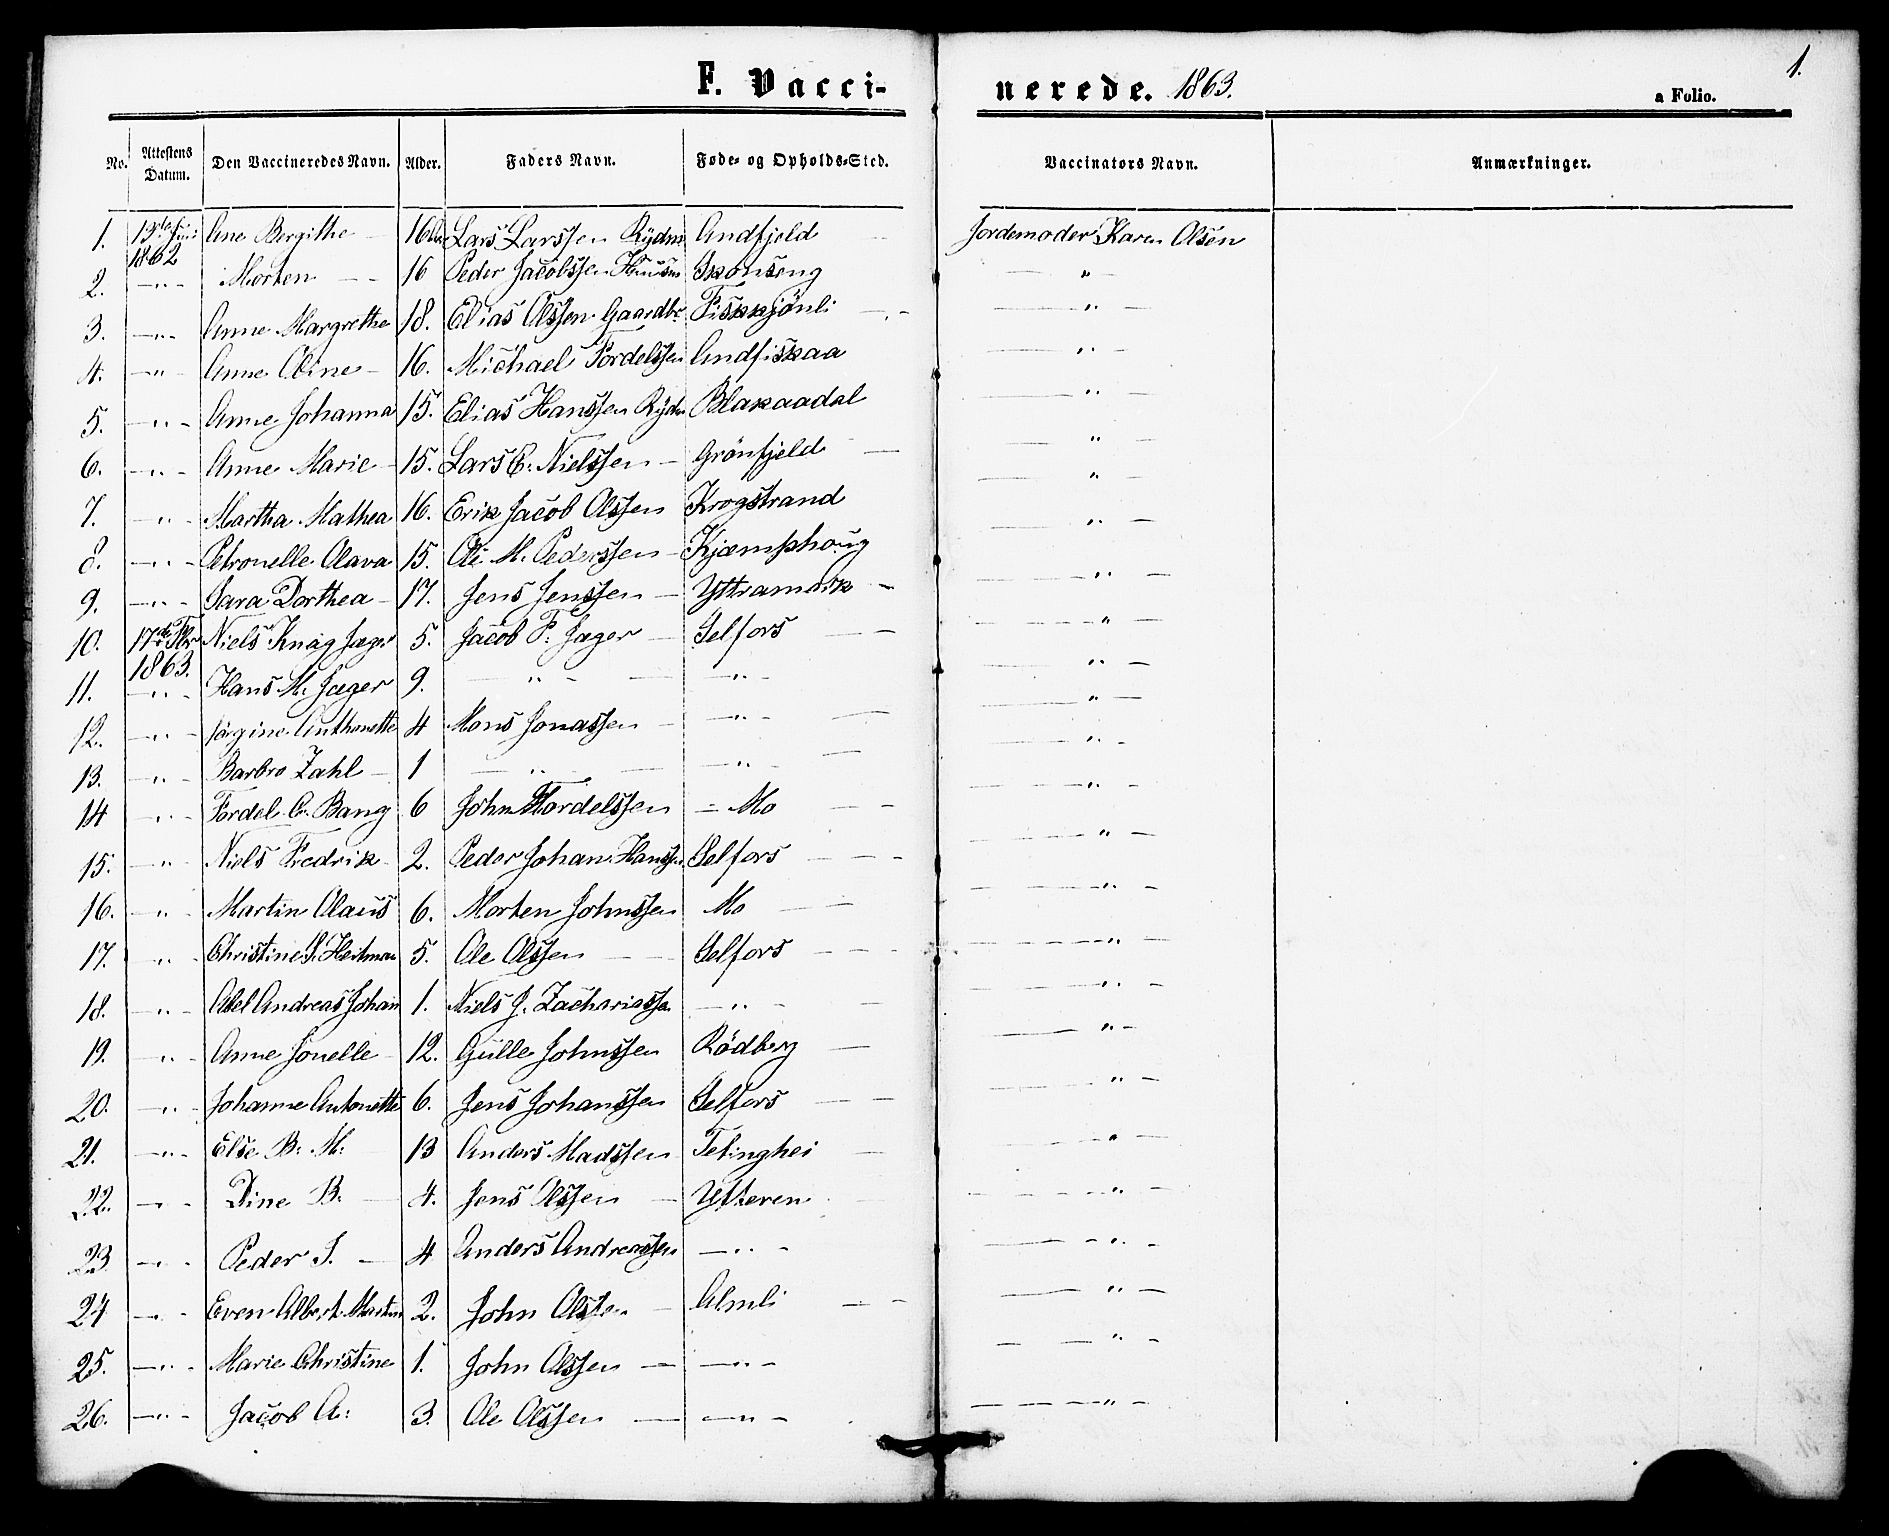 F. Vacci-
nerede. 1863.
1.
a Folio.
No. Attestens Datum. Den Vaccineredes Navn. Alder. Faders Navn. Føde- og Opholds-Sted. Vaccinators Navn. Anmærkninger.
1. 13de Juni 1862 Ane Bergithe — 16 Lars Larssen Rydn Andfjeld Jordemoder Karen Olsen
2. —"— Morten — 16 Peder Jacobssen Huusm Skonseng —"—
3. —"— Anne Margrethe 18. Elias Olssen Gaardbr Fiskkjönli —"—
4. —"— Anne Oline — 16. Michael Tordelssen Andfiskaa —"—
5. —"— Anne Johanna 15. Elias Hanssen Rydn Blakaadal —"—
6. —"— Anne Marie — 15. Lars E. Nielssen — Grönfjeld —"—
7. —"— Martha Mathea 16. Erik Jacob Olssen Krogstrand —"—
8. —"— Petronelle Olava 15. Ole M. Pederssen — Kjæmphoug —"—
9. —"— Sara Dorthea — 17. Jens Jenssen — Yttramark — —"—
10. 17de Fbr 1863. Niels Knag Jæger 5. Jacob F. Jæger — Selfors —"—
11. —"— Hans M. Jæger 9. —"— —"— —"—
12. —"— Jörgine Anthonette 4 Mons Jonassen — —"— —"—
13. —"— Barbro Zahl — 1 —"— —"— —"—
14 —"— Tordel C. Bang 6 John Tordelssen — Mo —"—
15. —"— Niels Fredrik 2. Peder Johan Hanssen Selfors —"—
16. —"— Martin Olaus 6. Morten Johnssen Mo —"—
17. —"— Christine S. Heitman 5. Ole Olssen — Selfors —"—
18. —"— Abel Andreas Johan 1. Niels J. Zachariassen —"— —"—
19. —"— Anne Jonelle 12. Gulle Johnssen Rödberg —"—
20. —"— Johanne Antonette 6. Jens Johanssen Selfors —"—
21. —"— Else B. M. 13 Anders Madssen Telinghei —"—
22. —"— Dine B. — 4. Jens Olssen — Ytteren —"—
23. —"— Peder S. — 4 Anders Andreassen —"— —"—
24 —"— Even Albert Martin 2. John Olssen — Almli —"—
25. —"— Marie Christine 1. John Olssen — —"— —"—
26. —"— Jacob A: 3. Ole Olssen — —"— —"—